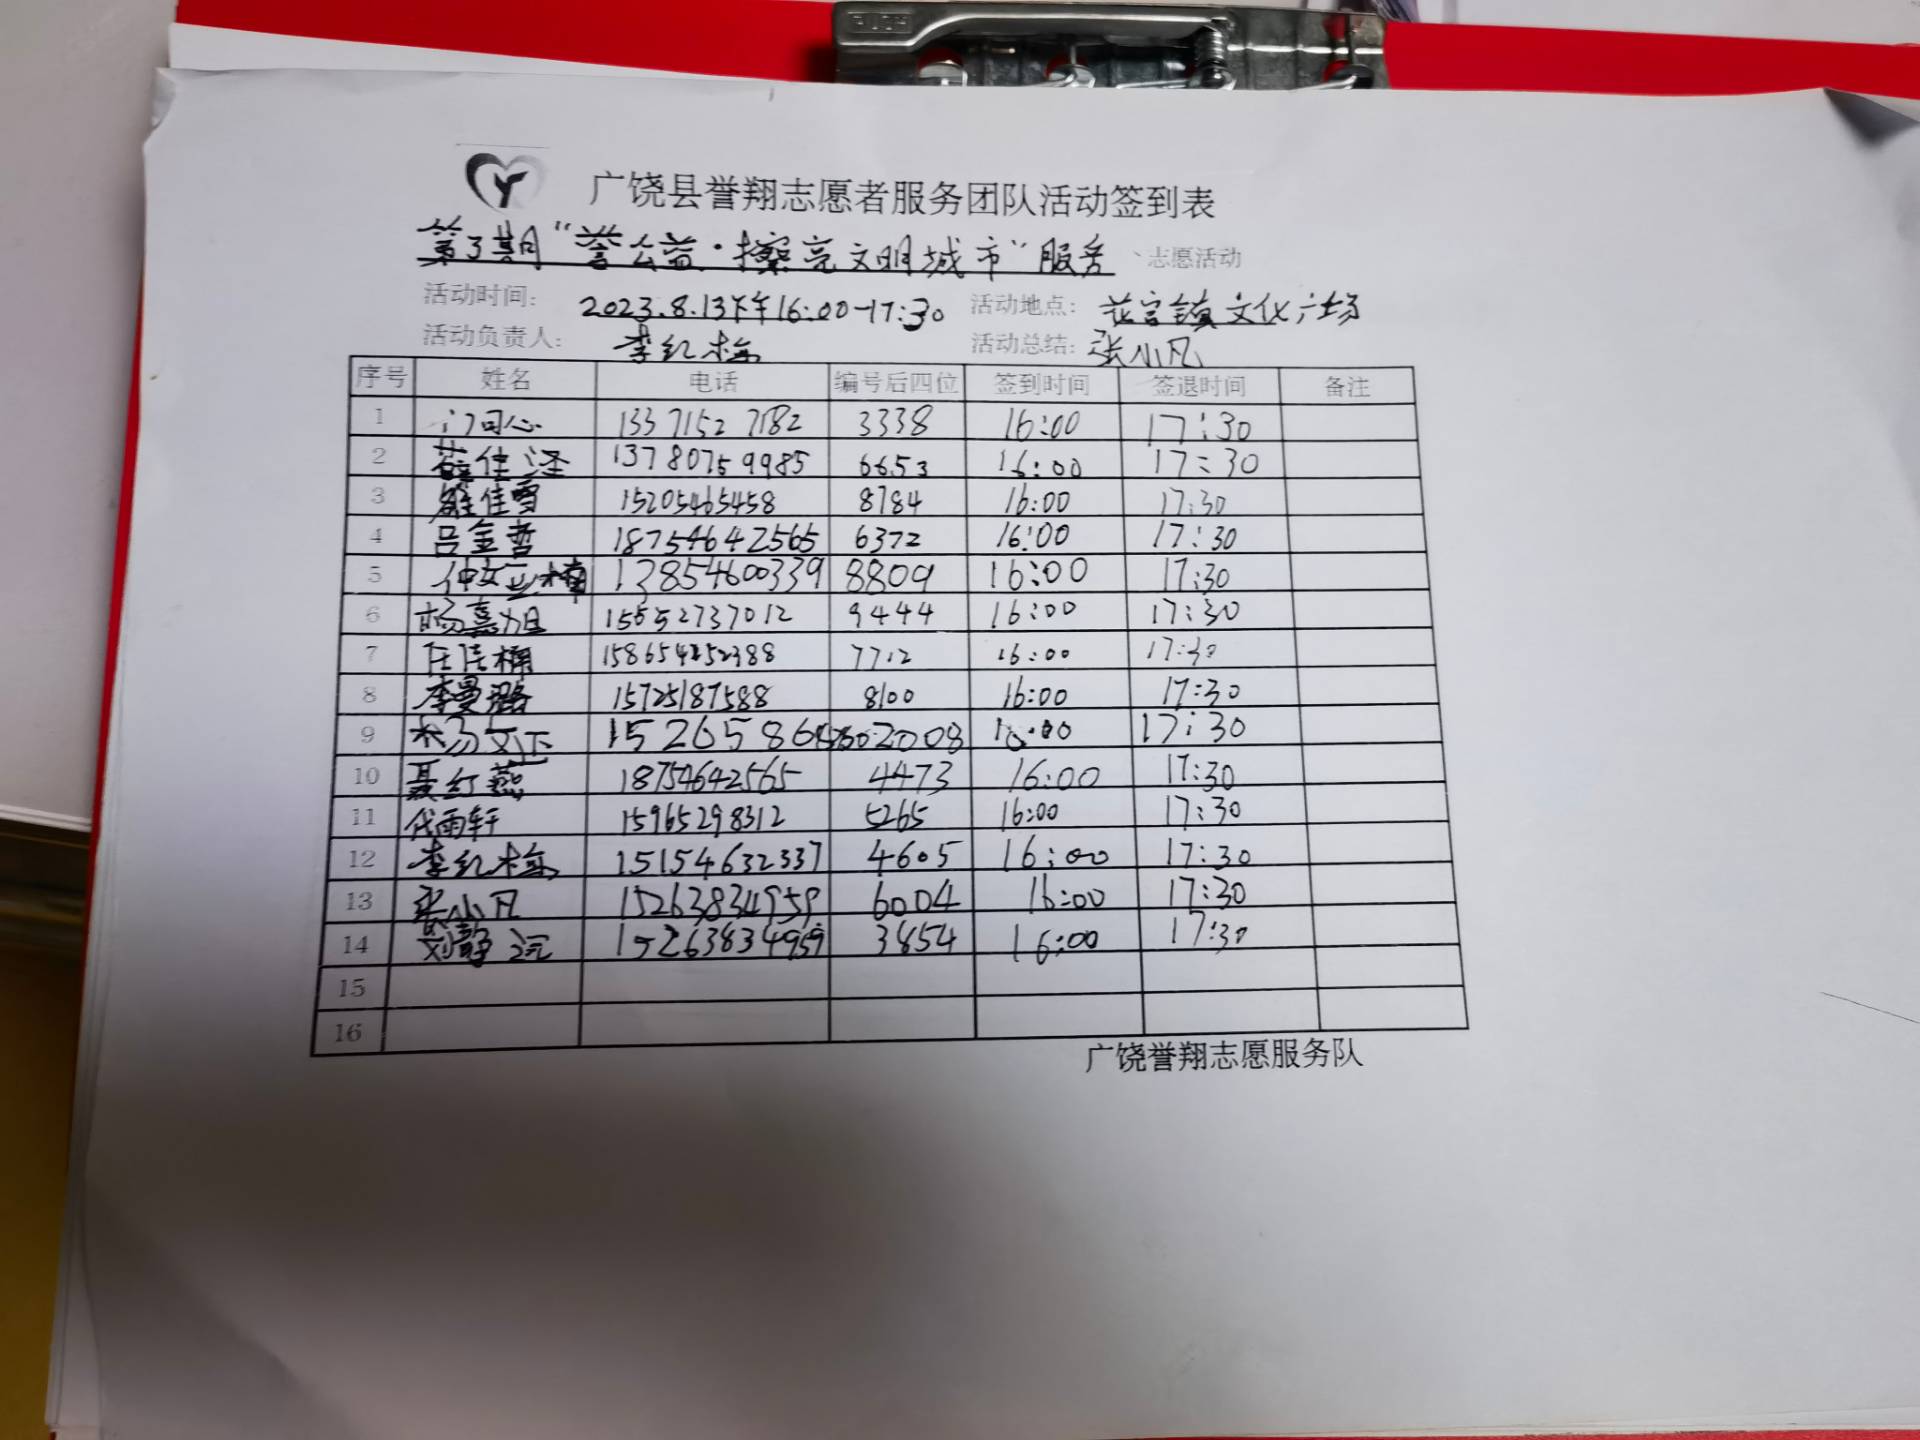 广饶县誉翔志愿者服务团队活动签到表
第3期“誉公益·擦亮文明城市”服务 志愿活动
活动时间: 2023.8.13下午16:00-17:30 活动地点: 花官镇文化广场
活动负责人: 李红梅 活动总结: 张小凡
序号 姓名 电话 编号后四位 签到时间 签退时间 备注
1 门同心 13371527182 3338 16:00 17:30
2 薛佳泽 13780759985 6653 16:00 17:30
3 佳雪 15205465458 8784 16:00 17:30
4 吕金哲 18754642565 6372 16:00 17:30
5 13854600339 8809 16:00 17:30
6 杨嘉旭 15552737012 9444 16:00 17:30
7 任佳楠 7712 16:00 17:30
8 李曼璐 15725187588 8100 16:00 17:30
9 杨文正 2008 16:00 17:30
10 聂红燕 18754642565 4473 16:00 17:30
11 代雨轩 15965298312 5265 16:00 17:30
12 李红梅 15154632337 4605 16:00 17:30
13 张小凡 15263834959 6004 16:00 17:30
14 刘静远 15263834959 3854 16:00 17:30
15
16
广饶誉翔志愿服务队